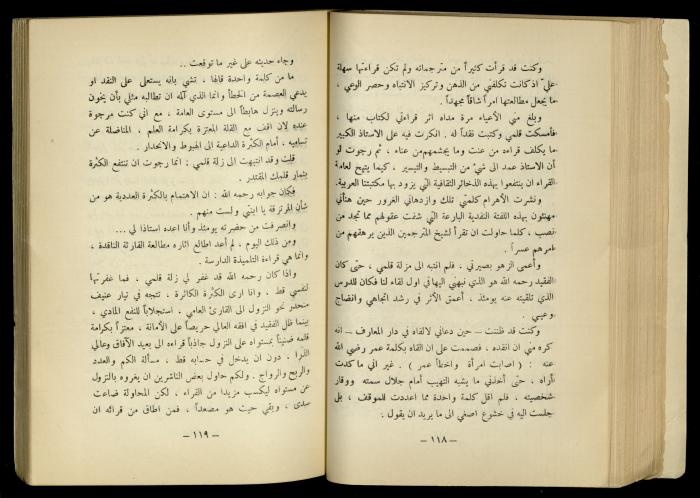 وكنت قد قرأت كثيراً من مترجماته ولم تكن قراءتها سهلة
علي اذ كانت تكلفني من الذهن وتركيز الانتباه وحصر الوعي ،
ما يجعل مطالعتها امراً شاقاً مجهداً .
وبلغ مني الأعياء مرة مداه اثر قراءتي لكتاب منها ،
فأمسكت قلمي وكتبت نقداً له . انكرت فيه على الاستاذ الكبير
ما يكلف قراءه من عنت وما يجشمهم من عناء ، ثم رجوت لو
أن الاستاذ عمد الى شيء من التبسيط والتيسير ، كيما يتيح لعامة
القراء ان ينتفعوا بهذه الذخائر الثقافية التي يزود بها مكتبتنا العربية.
ونشرت الأهرام كلمتي تلك وازدهاني الغرور حين هنأني
مهنئون بهذه اللفتة النقدية البارعة التي شفت عقولهم مما تجد من
نصب ، كلما حاولت ان تقرأ لشيخ المترجمين الذين يرهقهم من
امرهم عسراً .
وأعمى الزهو بصيرتي ، فلم انتبه الى مزلة قلمي ، حتى كان
الفقيد رحمه الله هو الذي نبهني اليها في اول لقاء لنا فكان للدرس
الذي تلقيته عنه يومئذ ، أعمق الأثر في رشد اتجاهي وانضاج
وعيي .
وكنت قد ظننت – حين دعاني لالقاه في دار المعارف – انه
كره مني ان انقده ، فصممت على ان القاه بكلمة عمر رضي الله
عنه : ( اصابت امرأة واخطأ عمر ) . غير اني ما كدت
أراه ، حتى أخذني ما يشبه التهيب أمام جلال سمته ووقار
شخصيته ، فلم اقل كلمة واحدة مما اعددت للموقف ، بل
جلست اليه في خشوع اصغي الى ما يريد ان يقول .
– ١١٨ –
وجاء حديثه على غير ما توقعت ..
ما من كلمة واحدة قالها ، تشي بانه يستعلى على النقد او
يدعي العصمة من الخطأ وانما الذي آلمه ان تطالبه مثلي بأن يخون
رسالته وينزل هابطاً الى مستوى العامة ، مع اني كنت مرجوة
عنده لان اقف مع القلة المعتزة بكرامة العلم ، المناضلة عن
تساميه ، أمام الكثرة الداعية الى الهبوط والانحدار .
قلت وقد انتبهت الى زلة قلمي : انما رجوت ان تنتفع الكثرة
بثمار قلمك المقتدر .
فكان جوابه رحمه الله : ان الاهتمام بالكثرة العددية هو من
شأن المرتزقة يا ابنتي ولست منهم .
وانصرفت من حضرته يومئذ وأنا اعده استاذا لي ...
ومن ذلك اليوم ، لم أعد اطالع اثاره مطالعة القارئة الناقدة ،
وانما هي قراءة التلميذة الدارسة .
واذا كان رحمه الله قد غفر لي زلة قلمي ، فما غفرتها
لنفسي قط ، وانا ارى الكثرة الكاثرة ، تتجه في تيار عنيف
منحدر نحو النزول الى القارئ العامي . استجلاباً للنفع المادي ،
بينما ظل الفقيد في افقه العالي حريصاً على الأمانة ، معتزاً بكرامة
قلمه ضنيناً بمستواه على النزول جاذباً قراءه الى بعيد الآفاق وعالي
الذرا ، دون ان يدخل في حسابه قط ، مسألة الكم والعدد
والربح والرواج . ولكم حاول بعض الناشرين ان يغروه بالنزول
عن مستواه ليكسب مزيدا من القراء ، لكن المحاولة ضاعت
سدى ، وبقي حيث هو مصعداً ، فمن اطاق من قرائه ان
– ١١٩ –